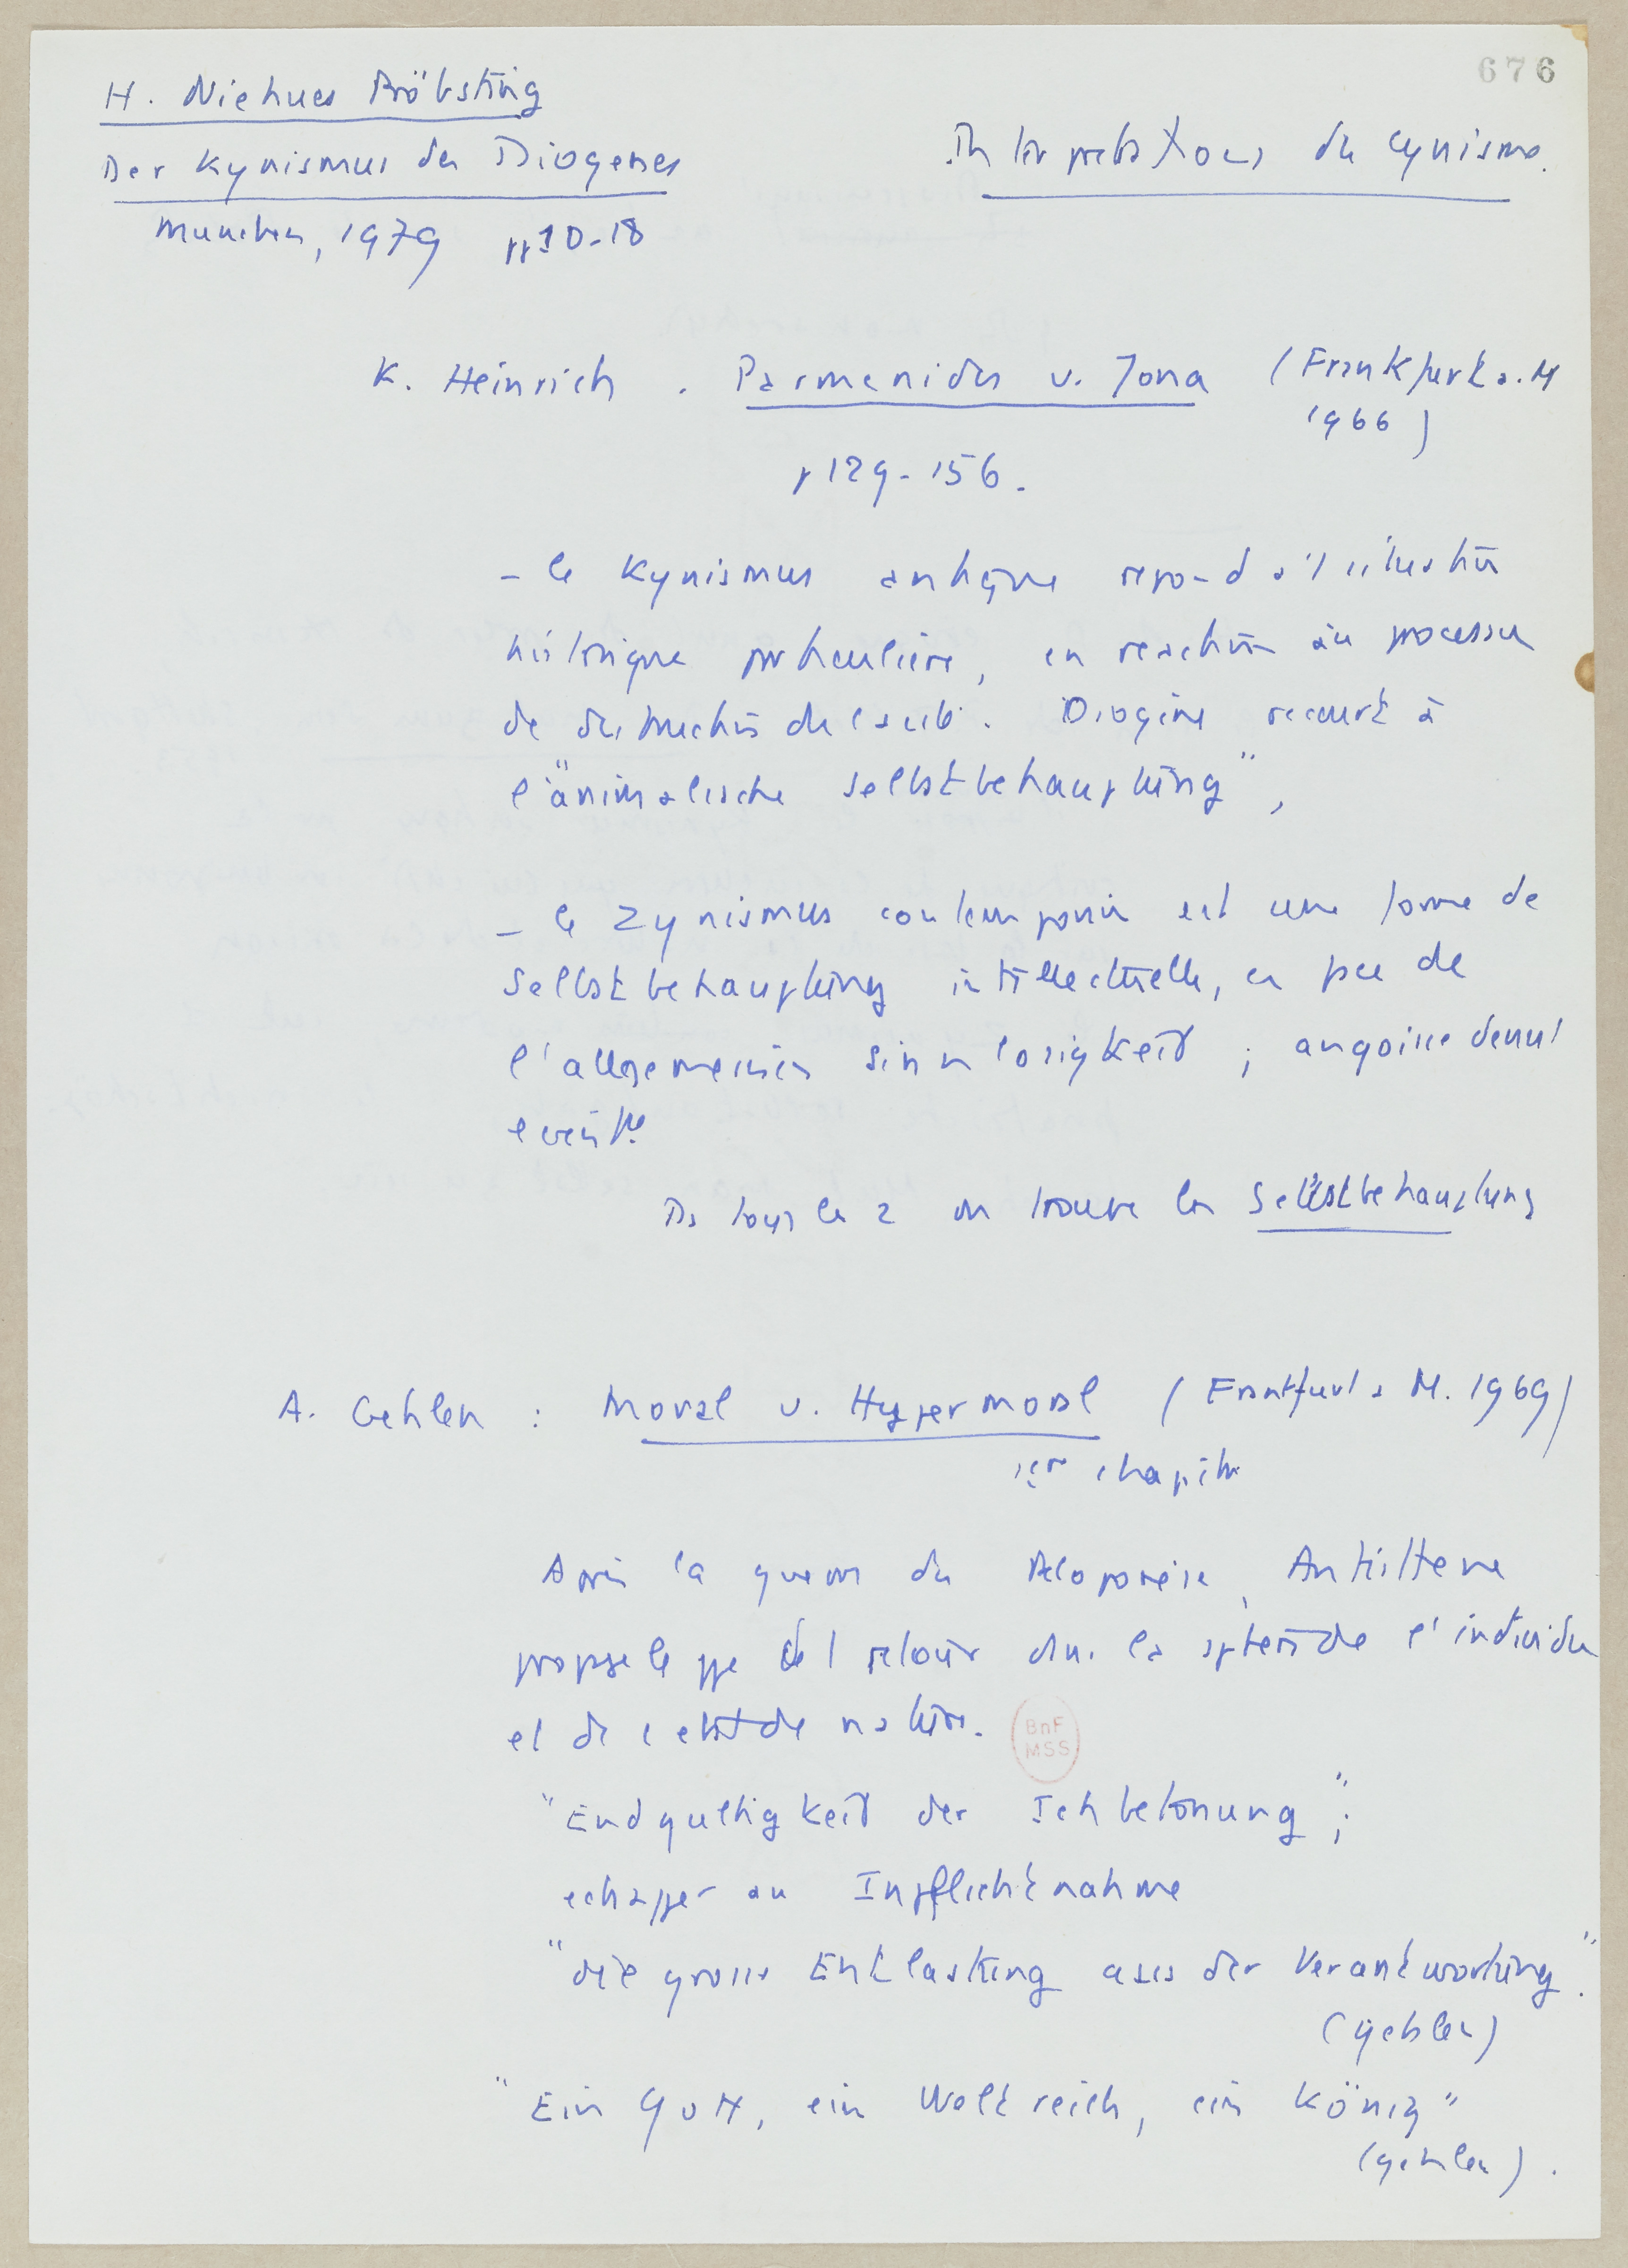 676
H. Niehues Pröbsting
Der Kynismus des Diogenes
Munchen, 1979 pp 10-18
Interpretations du cynisme.
K. Heinrich . Parmenides u. Jona (Frankfurt a. M
1966)
p 129-156.
- le Kynismus antique repond a 1 situation
historique particuliere, en reaction au processus
de destruction de la cité. Diogène recourt à
l'"animalische Selbstbehauptung",
- le Zynismus contemporain est une forme de
Selbstbehauptung intellectuelle, en face de
l'allgemeinen Sinnlosigkeit ; angoisse devant
le vide
Ds tous les 2 on trouve la Selbstbehauptung
A. Gehlen : Moral u. Hypermoral (Frankfurt a M. 1969)
1er chapitre
Après la guerre du Peloponèse, Antisthene
propose le ppe del retour dns la sphère de l'individu
et de l'etat de nature.
"Endgultigkeit der Ichbetonung";
echapper au Inpflichtnahme
"die grosse Entlastung aus der Verantwortung".
(Gehlen)
"Ein Gott, ein Weltreich, ein König"
(Gehlen).
BnF
MSS